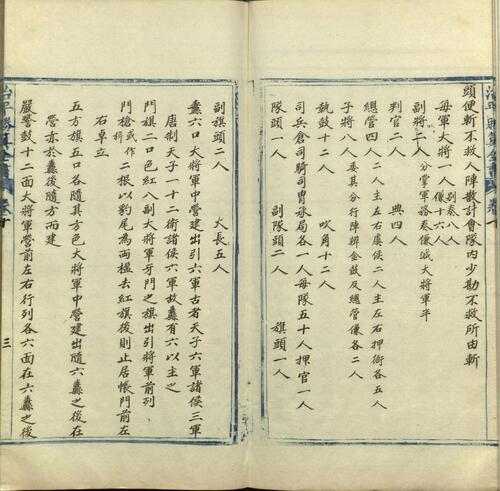 頭便斬不救人陣散計會隊內少勘不救所由斬
每軍大將一人別奏八人
傔十六人
副將二人分掌軍務奏傔減大將軍半
判官二人　典四人
總管四人二人主左右虞侯二人主左右押衙各五人
子將八人委其分行陣辨金鼓及總管傔各二人
執鼓十二人　吹角十二人
司兵倉司騎司胄承局各一人每隊五十人押官一人
隊頭一人　副隊頭二人　旗頭一人
副旗頭二人　火長五人
纛六口大將軍中營建出引六軍古者天子六軍諸侯三軍
唐制天子一十二衛諸侯六軍故纛有六以主之
門旗二口色紅八副大將軍牙門之旗出引將軍前列
門槍或作
二根以豹尾為兩榲去紅旗後則止居帳門前左
右卓立
五方旗五口各隨其方色大將軍中營建出隨六纛之後在
營亦於纛後隨方而建
嚴警鼓十二面大將軍營前左右行列各六面在六纛之後
三